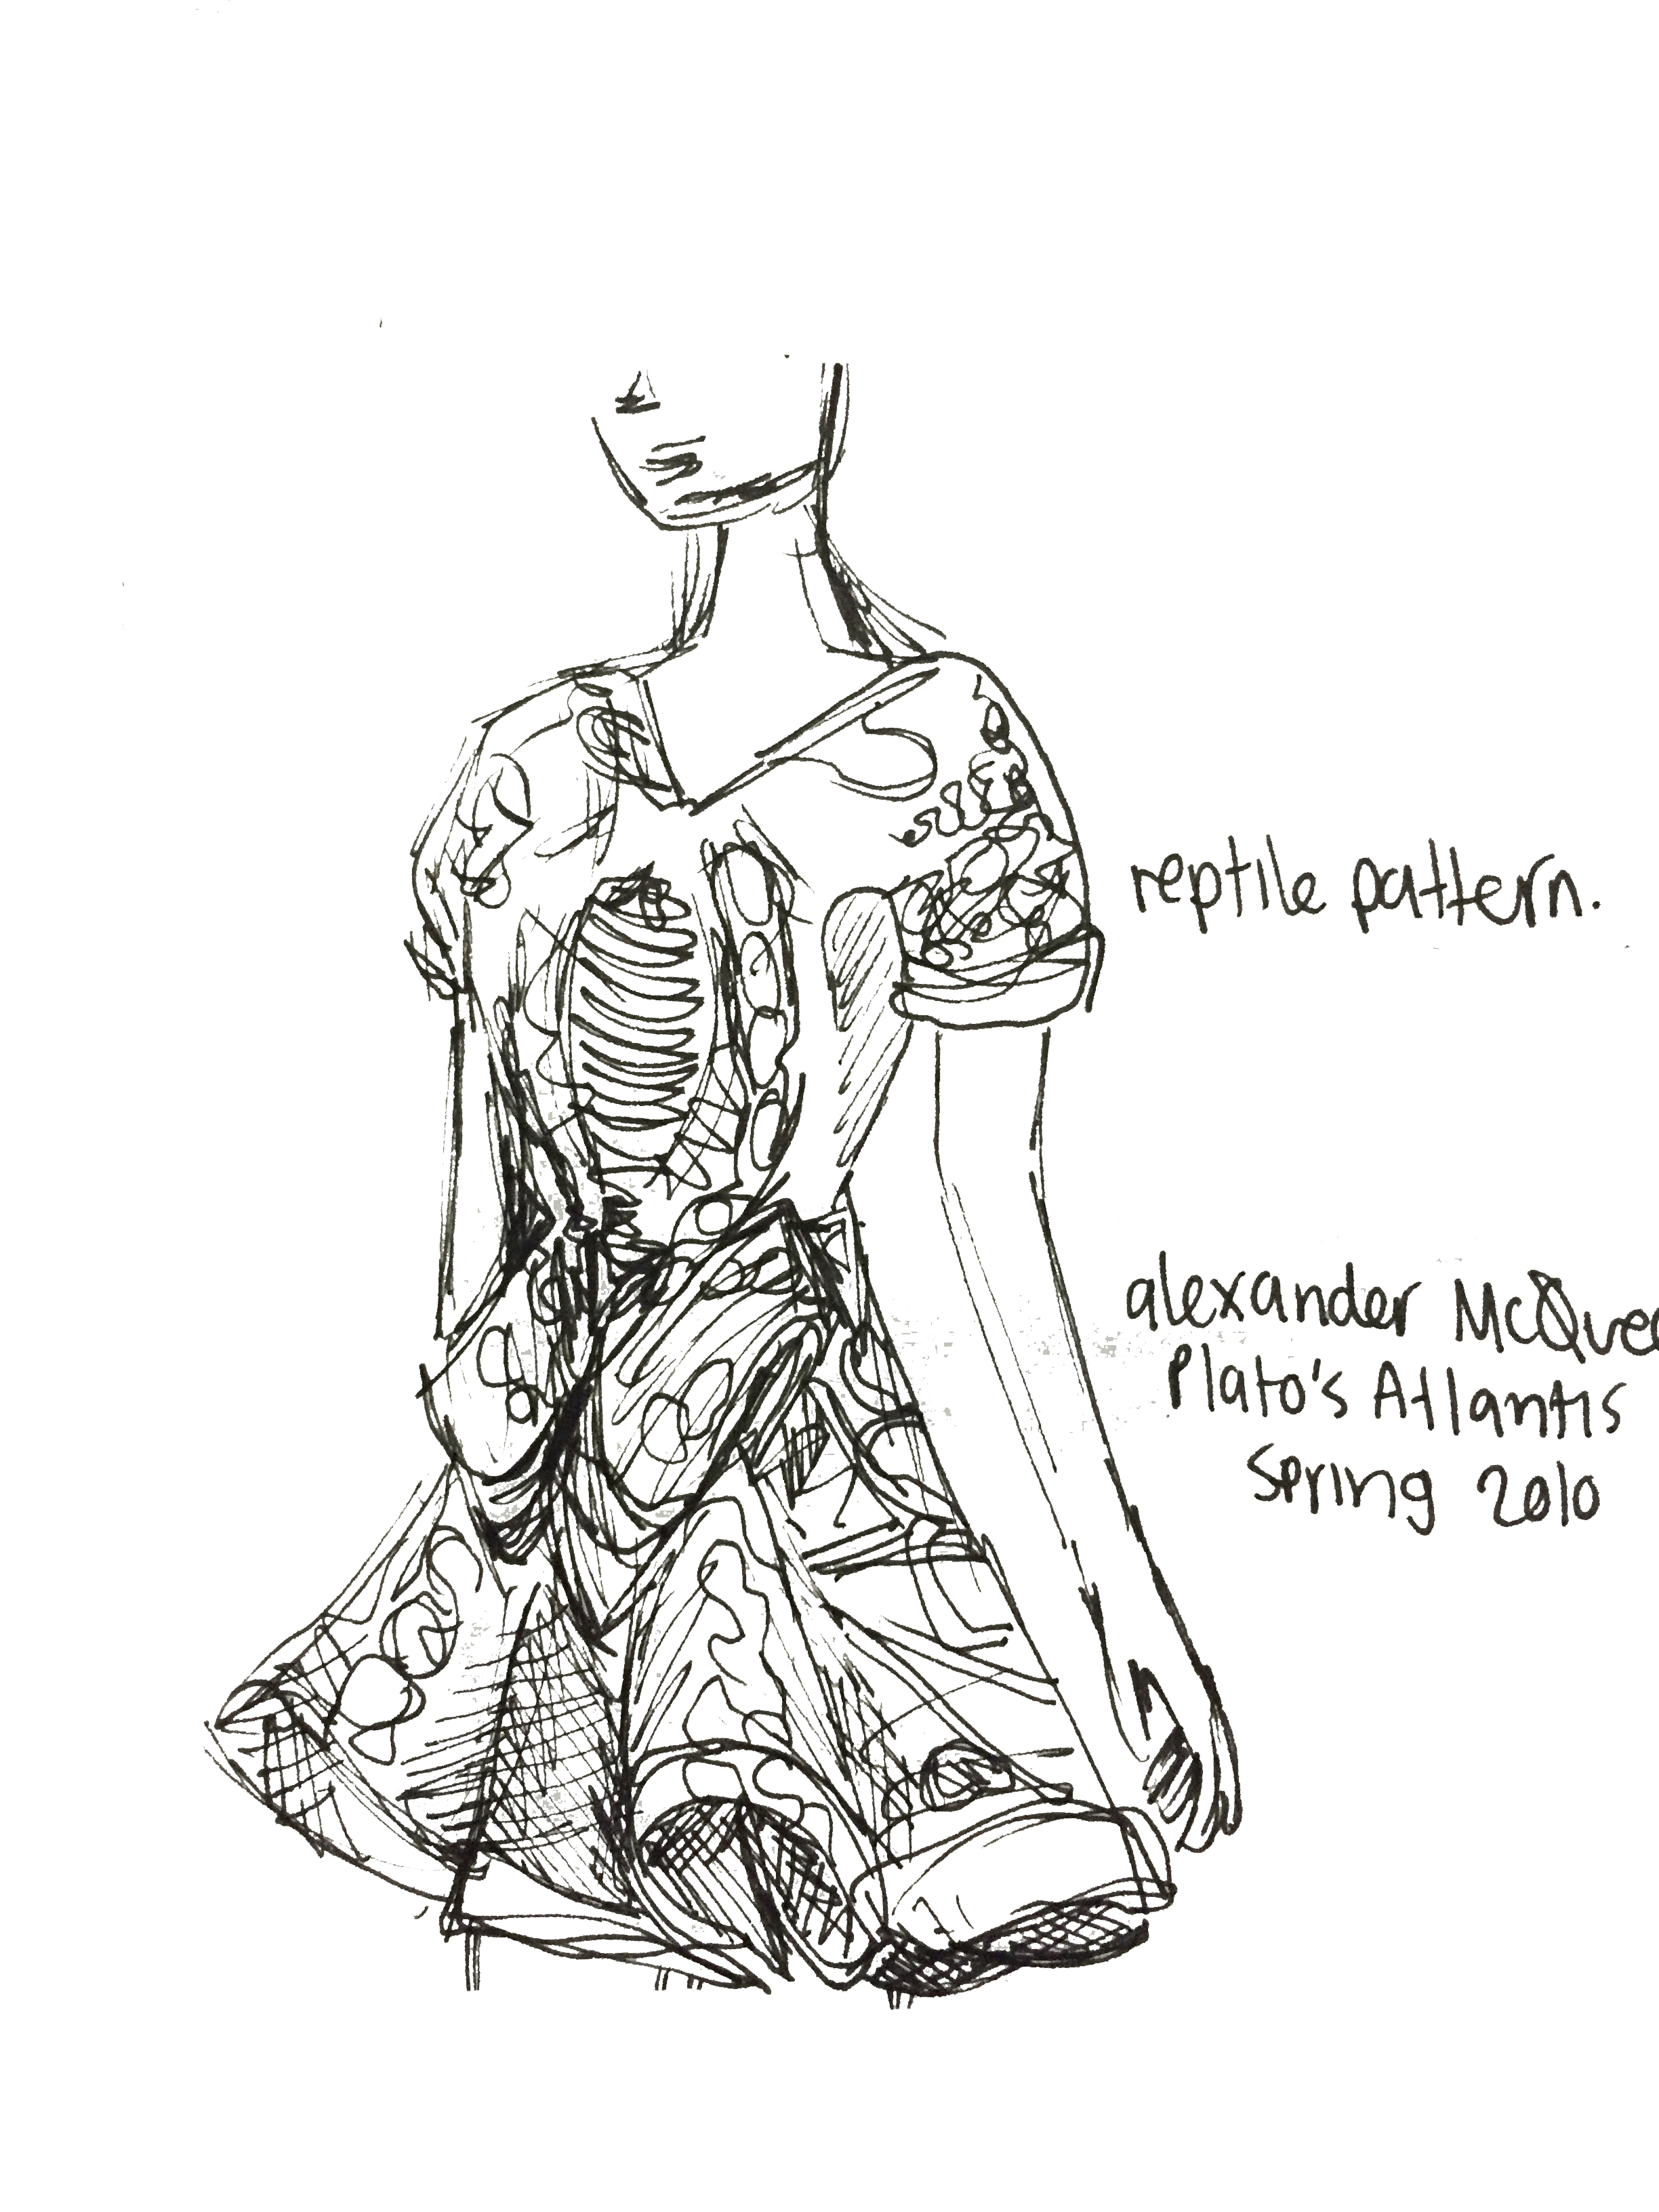 reptile pattern.
alexander McQuee
Plato's Atlantis
Spring 2010